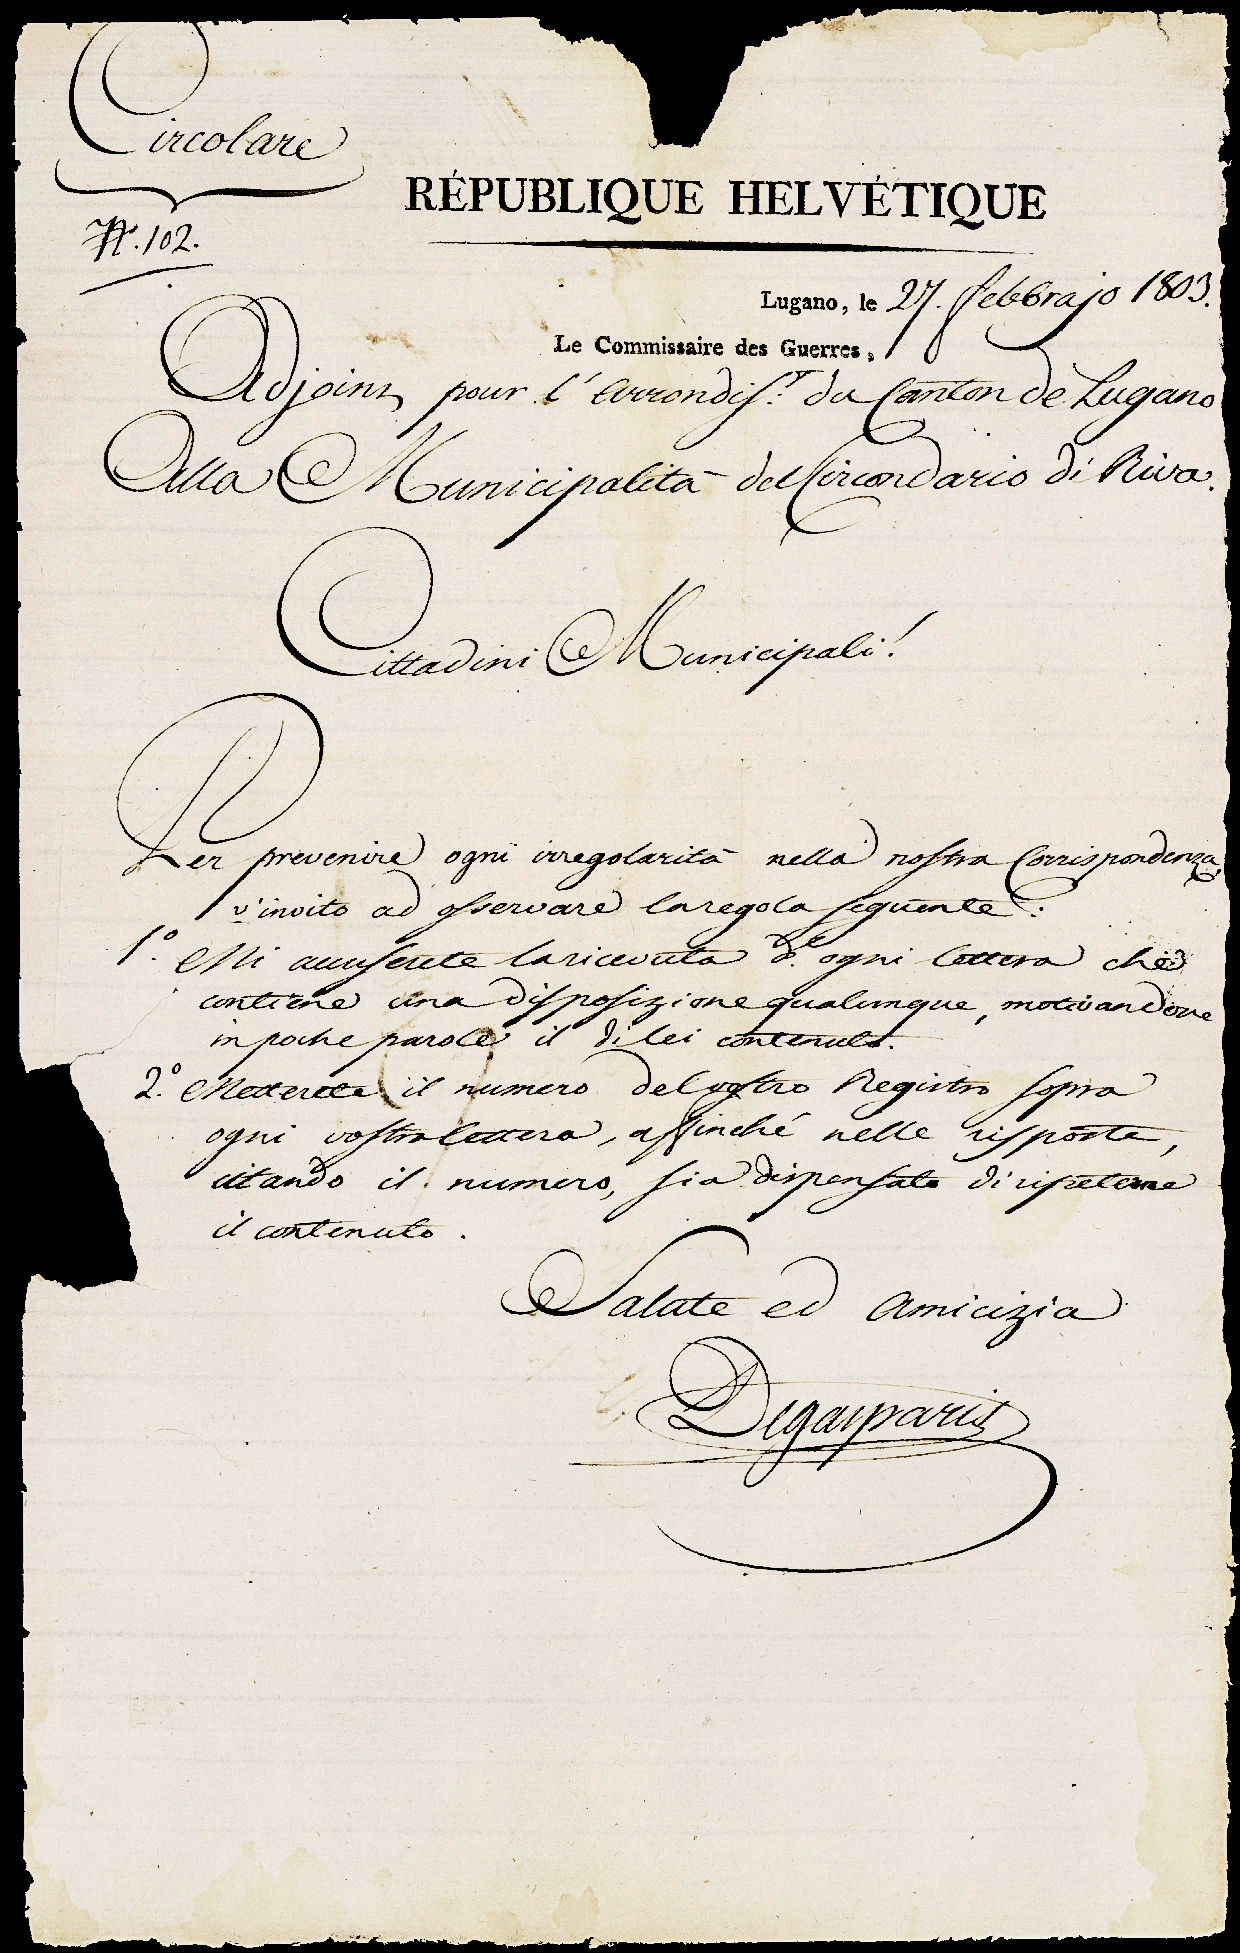 Circolare
N. 102.
RÉPUBLIQUE HELVÉTIQUE
Lugano, le 27. febbrajo 1803.
Le Commissaire des Guerres,
Adjoint pour l'Arrondis.t du Canton de Lugano
Alla Municipalità del Circondario di Riva.
Cittadini Municipali!
Per prevenire ogni irregolarità nella nostra Corrispondenza,
v'invito ad osservare la regola seguente:
1.o Mi accuserete la ricevuta d. ogni lettera che
contiene una disposizione qualunque, motivandone
in poche parole il di lei contenuto.
2.o Metterete il numero del vostro Registro sopra
ogni vostra lettera, affinché nelle risposte,
citando il numero, sia dispensato di ripeterne
il contenuto.
Salute ed Amicizia
Degasparis